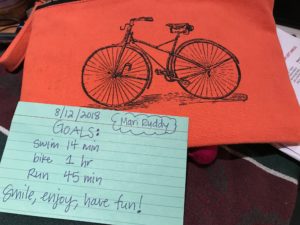 8/12/2018 Mari Ruddy
GOALS:
swim 14 min
bike 1 hr
Run 45 min
Smile, enjoy, have fun!